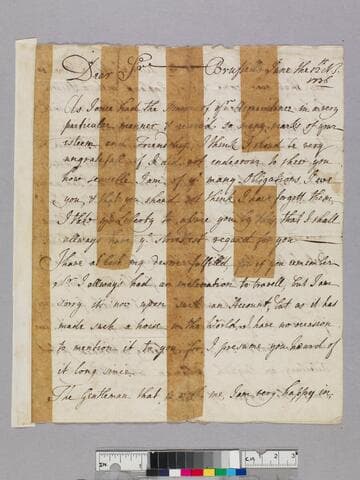 Dear Sr Brussells June the 12th N.S.
1726
As I once had the Honour of yr Acquaintance in a very
particular manner, & receiv'd so many marks of your
esteem and friendship, I think I shou'd be very
ungratefull if I did not endeavour to shew you
how sensible I am of ye many Obligations I owe
you, & that you should not think I have forgott them
I take the Liberty to assure you by this, that I shall
allways have ye sincerest regard for you
I have at last my desire fulfilled for if you remember
Sr. I allways had an inclination to travell, but I am
sorry it's now upon such an Account, but as it has
made such a noise in the World, I have no occasion
to mention it to you for I presume you heard of
it long since.
The Gentleman that is with me, I am very happy in
CM 1 2 3